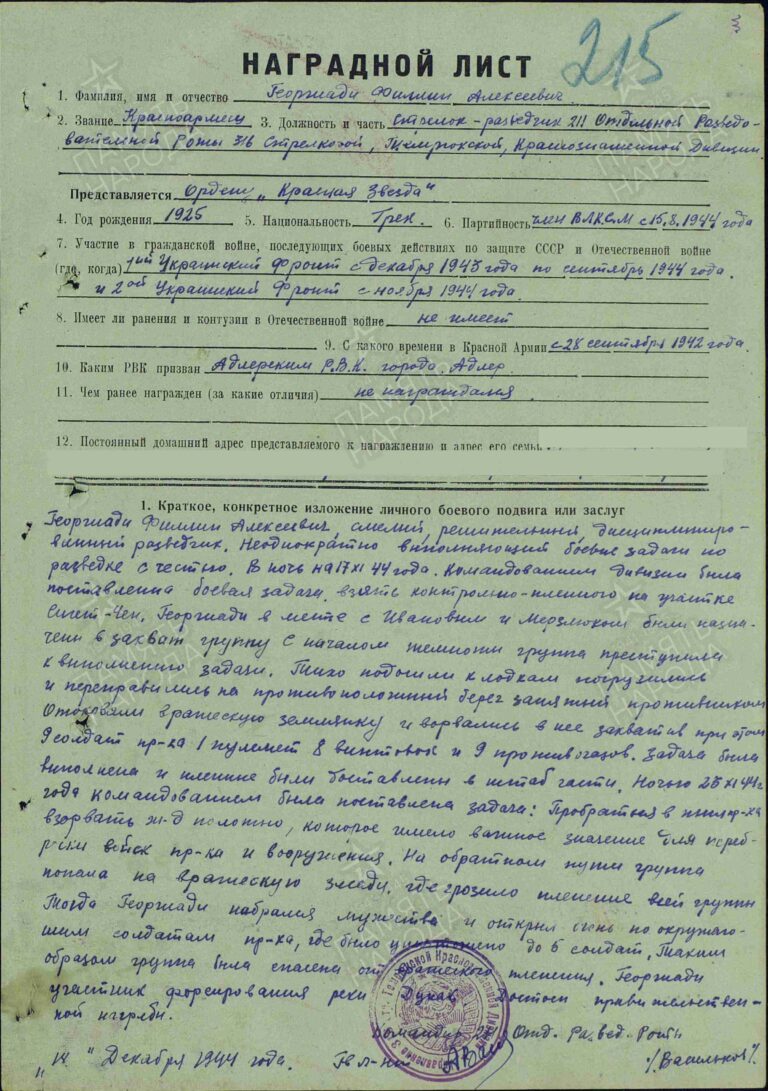 3
215
НАГРАДНОЙ ЛИСТ
1. Фамилия, имя и отчество Георгиади Филипп Алексеевич
2. Звание Красноармеец 3. Должность и часть стрелок-разведчик 211 Отдельной Разведо-
вательной Роты 316 Стрелковой, Темрюкской, Краснознаменной Дивизии
Представляется Ордену „Красная Звезда"
4. Год рождения 1925 5. Национальность Грек. 6. Партийность член ВЛКСМ с 15.8.1944 года
7. Участие в гражданской войне, последующих боевых действиях по защите СССР и Отечественной войне
(где, когда) 1ый Украинский фронт с декабря 1943 года по сентябрь 1944 года.
и 2ой Украинский фронт с ноября 1944 года.
8. Имеет ли ранения и контузии в Отечественной войне не имеет
9. С какого времени в Красной Армии с 28 сентября 1942 года.
10. Каким РВК призван Адлерским Р.В.К. города Адлер
11. Чем ранее награжден (за какие отличия) не награждался
12. Постоянный домашний адрес представляемого к награждению и адрес его семьи
1. Краткое, конкретное изложение личного боевого подвига или заслуг
Георгиади Филипп Алексеевич, смелый, решительный, дисциплиниро-
ванный разведчик. Неоднократно выполняющий боевые задачи по
разведке с честью. В ночь на 17 XI 44 года. Командованием дивизии была
поставлена боевая задача, взять контрольно-пленного на участке
Сигет-Чеп. Георгиади в месте с Ивановым и Мерзлюком были назна-
чены в захват группу с началом темноты группа преступила
к выполнению задачи. Тихо подошли к лодкам погрузились
и переправились на противоположный берег занятый противником
вражескую землянку и ворвались в нее захватив при этом
9 солдат пр-ка 1 пулемет 8 винтовок и 9 противогазов. Задача была
выполнена и пленные были доставлены в штаб части. Ночью 25 XI 44 г
года командованием была поставлена задача: Пробраться в тыл пр-ка
взорвать ж-д полотно, которое имело важное значение для переб-
роски войск пр-ка и вооружения. На обратном пути группа
попала на вражескую засаду, где грозило пленение всей группы
Тогда Георгиади набрался мужества и открыл огонь по окружаю-
шим солдатам пр-ка, где было уничтожено до 6 солдат. Таким
образом группа была спасена от вражеского пленения. Георгиади
участник форсирования реки Дунай достоен правительствен-
ной награды.
Командир 211 Отд. Развед. Роты
„14" Декабря 1944 года. Гв Л-нт /Васильков/.